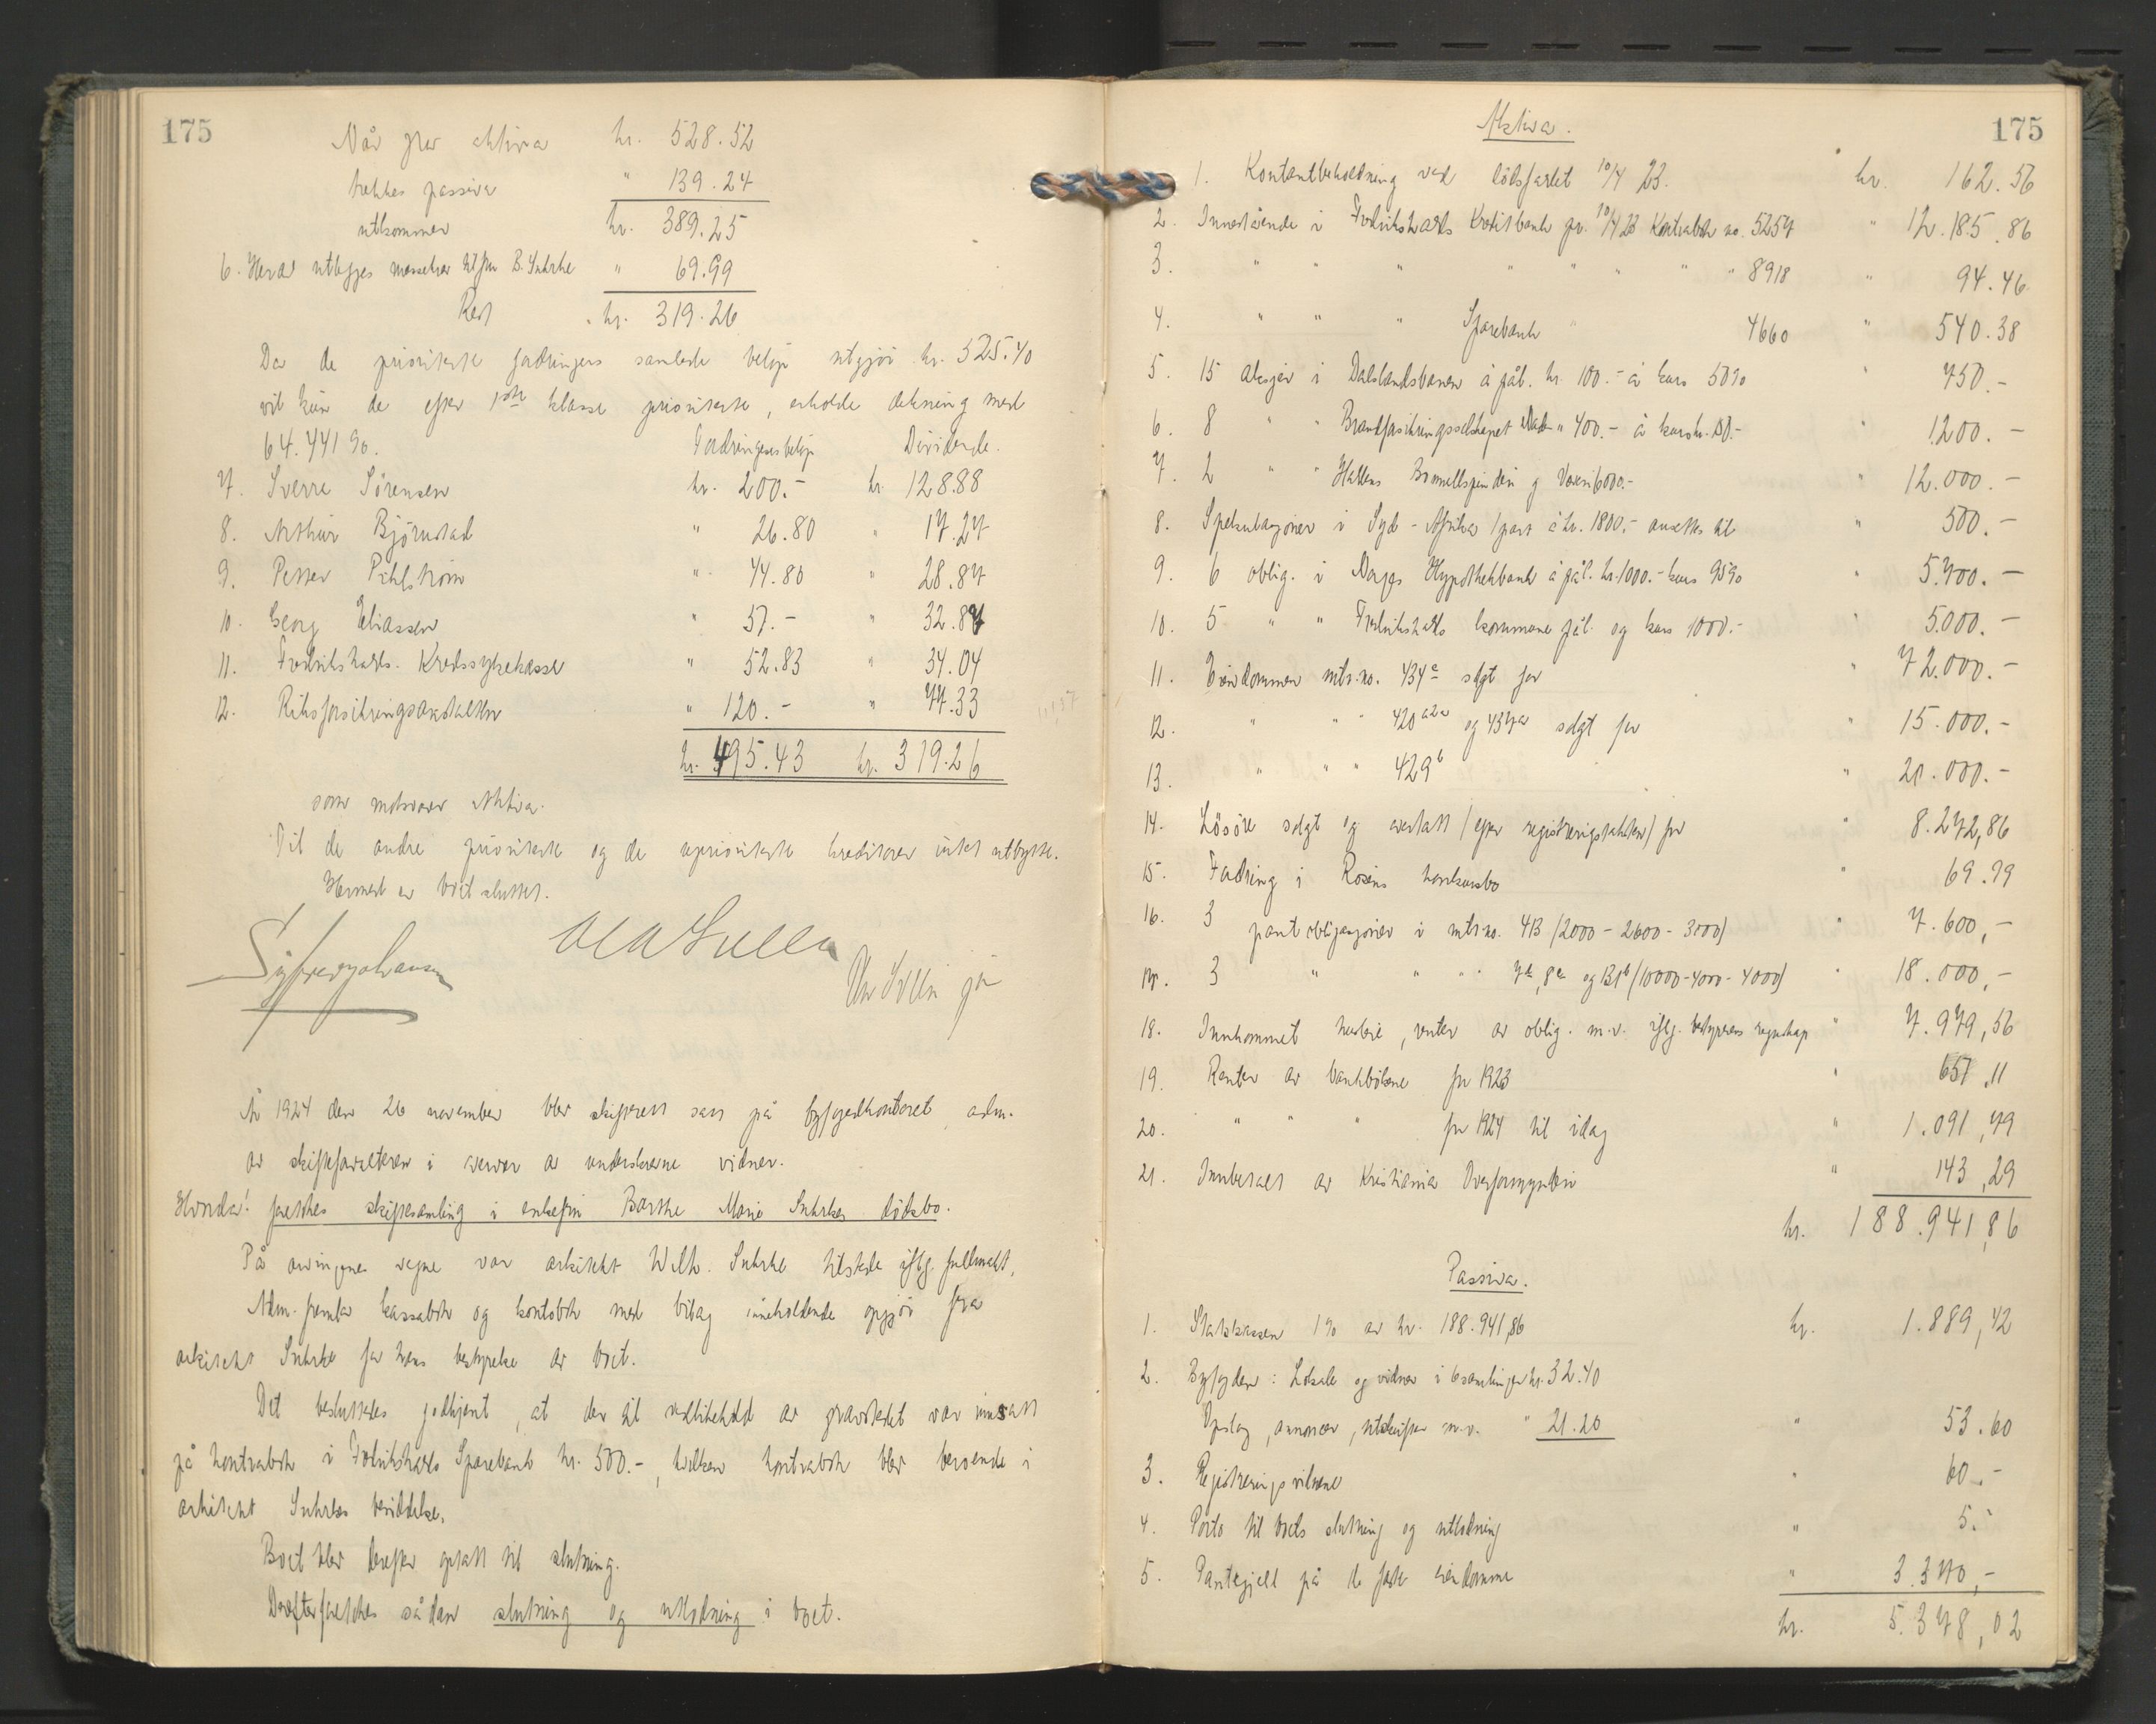 175
Når fra aktiva kr. 528.52
trekkes passiva " 139.27
utkommer kr. 389.25
6. Herav utlegges massekrav til fru B. Suhrke " 69.99
Rest kr. 319.26
Da de prioriterte fordringers samlede beløp utgjør kr. 525.40
vil kun de efter 1ste klasse prioriterte, erholde dekning med
64.441 %. Fordringenes beløp Dividende.
7. Sverre Sørensen kr. 200.- kr. 128.88
8. Arthur Bjørnstad " 26.80 " 17.27
9. Petter Pihlstrøm " 44.80 " 28.87
10. Georg Eliassen " 51.- " 32.87
11. Fredrikshalds Kredssykekasse " 52.83 " 34.04
12. Riksforsikringsanstalten " 120.- " 77.33
kr. 495.43 kr. 319.26
som motsvarer Aktiva.
Til de andre prioriterte og de uprioriterte kreditorer intet utbytte.
Hermed er boet sluttet.
År 1924 den 26 november blev skifterett satt på byfogedkontoret, adm.
av skifteforvalteren i nerver av underskrevne vidner.
Hvorda! foretokes skiftesamling i enkefru Barthe Marie Suhrkes dødsbo.
På arvingenes vegne var arkitekt Wilh. Suhrke tilstede iflg. fullmakt.
Adm. fremla kassabok og kontobok med bilag inneholdende opgjør fra
arkitekt Suhrke for hans bestyrelse av boet.
Det besluttedes godkjent, at der til vedlikehold av gravstedet var innsatt
på kontrabok i Fredrikshalds Sparebank kr. 500.-, hvilken kontrabok blev beroende i
arkitekt Suhrkes besiddelse.
Boet blev derefter optatt til slutning.
Derefter foretokes sådan slutning og utlodning i boet.
175
Aktiva.
1. Kontantbeholdning ved dødsfallet 10/4 23. kr. 162.56
2. Innestående i Fredrikshalds Kreditbank pr. 10/4 23 Kontrabok no. 5257 " 12.185.86
3. " " " " " " " " 8918 " 94.46
4. " " " Sparebank " 4660 " 540.38
5. 15 aksjer i Dalslandsbanen à pål. kr. 100.- à kurs 50% " 750.-
6. 8 " " Brandforsikringsselskapet " 400.- à kurs kr. 150.- " 1200.-
7. 2 " " Haldens Bomullspinderi og Væveri 6000.- " 12.000.-
8. Spekulasjoner i Syd-Afrika 1 part à kr. 1800.- ansettes til " 500.-
9. 6 oblig. i Norges Hypothekbank à pål. kr. 1000.- kurs 95% " 5.700.-
10. 5 " " Fredrikshalds kommune pål. og kurs 1000.- " 5.000.-
11. Eiendommen mtr. no. 434a solgt for " 72.000.-
12. " " " 420 a2a og 437a solgt for " 15.000.-
13. " " " 429b " 20.000.-
14. Løsøre solgt og overtatt (efter registreringstaksten) for " 8.272,86
15. Fordring i Rosens konkursbo " 69.99
16. 3 pantobligasjoner i mtr no. 413 (2000 - 2600 - 3000) " 7.600,-
17. 3 " " " " 7a, 8a og 131b (10000-4000-4000) " 18.000,-
18. Innkommet husleie, renter av oblig. m.v. iflg. bestyrerens regnskap " 7.979,56
19. Renter av bankbøkene for 1923 " 657,11
20. " " " for 1924 til idag " 1.091,79
21. Innbetalt av Kristiania Overformynderi " 143,29
kr. 188.941,86
Passiva.
1. Statskassen 1% av kr. 188.941,86 kr. 1.889,42
2. Byfogden: Lokale og vidner i 6 samlinger kr. 32.40
Opslag, annoncer, utskrifter m.v. " 21.20 " 53.60
3. Registreringsvidnene " 60.-
4. Porto til boets slutning og utlodning " 5.-
5. Pantegjeld på de faste eiendomme " 3.370,-
kr. 5.378,02